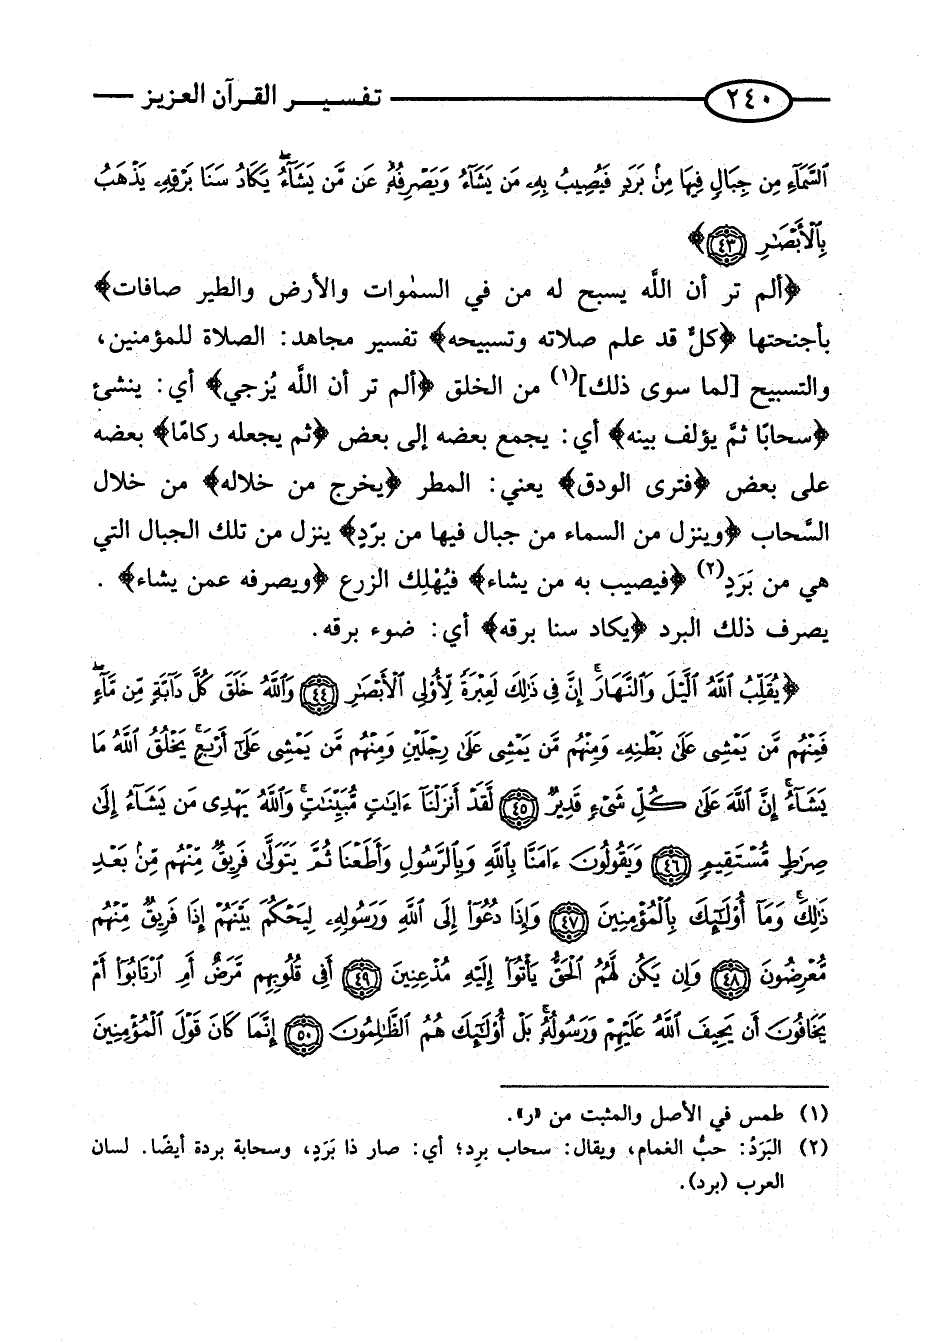 ٢٤٠ تفسير القرآن العزيز
ٱلسَّمَآءِ مِن جِبَالٍ فِيهَا مِنۢ بَرَدٍ فَيُصِيبُ بِهِۦ مَن يَشَآءُ وَيَصْرِفُهُۥ عَن مَّن يَشَآءُۖ يَكَادُ سَنَا بَرْقِهِۦ يَذْهَبُ
بِٱلْأَبْصَٰرِ ﴿٤٣﴾﴾
﴿ألم تر أن اللَّه يسبح له من في السمٰوات والأرض والطير صافات﴾
بأجنحتها ﴿كلٌّ قد علم صلاته وتسبيحه﴾ تفسير مجاهد: الصلاة للمؤمنين،
والتسبيح [لما سوى ذلك](١) من الخلق ﴿ألم تر أن اللَّه يُزجي﴾ أي: ينشئ
﴿سحابًا ثمَّ يؤلف بينه﴾ أي: يجمع بعضه إلى بعض ﴿ثم يجعله ركامًا﴾ بعضه
على بعض ﴿فترى الودق﴾ يعني: المطر ﴿يخرج من خلاله﴾ من خلال
السَّحاب ﴿وينزل من السماء من جبال فيها من برّدٍ﴾ ينزل من تلك الجبال التي
هي من بَرَدٍ(٢) ﴿فيصيب به من يشاء﴾ فيُهْلِك الزرع ﴿ويصرفه عمن يشاء﴾ .
يصرف ذلك البرد ﴿يكاد سنا برقه﴾ أي: ضوء برقه.
﴿يُقَلِّبُ ٱللَّهُ ٱلَّيْلَ وَٱلنَّهَارَۚ إِنَّ فِى ذَٰلِكَ لَعِبْرَةً لِّأُو۟لِى ٱلْأَبْصَٰرِ ﴿٤٤﴾ وَٱللَّهُ خَلَقَ كُلَّ دَآبَّةٍ مِّن مَّآءٍۖ
فَمِنْهُم مَّن يَمْشِى عَلَىٰ بَطْنِهِۦ وَمِنْهُم مَّن يَمْشِى عَلَىٰ رِجْلَيْنِ وَمِنْهُم مَّن يَمْشِى عَلَىٰٓ أَرْبَعٍۚ يَخْلُقُ ٱللَّهُ مَا
يَشَآءُۚ إِنَّ ٱللَّهَ عَلَىٰ كُلِّ شَىْءٍ قَدِيرٌ ﴿٤٥﴾ لَّقَدْ أَنزَلْنَآ ءَايَٰتٍ مُّبَيِّنَٰتٍۚ وَٱللَّهُ يَهْدِى مَن يَشَآءُ إِلَىٰ
صِرَٰطٍ مُّسْتَقِيمٍ ﴿٤٦﴾ وَيَقُولُونَ ءَامَنَّا بِٱللَّهِ وَبِٱلرَّسُولِ وَأَطَعْنَا ثُمَّ يَتَوَلَّىٰ فَرِيقٌ مِّنْهُم مِّنۢ بَعْدِ
ذَٰلِكَۚ وَمَآ أُو۟لَٰٓئِكَ بِٱلْمُؤْمِنِينَ ﴿٤٧﴾ وَإِذَا دُعُوٓا۟ إِلَى ٱللَّهِ وَرَسُولِهِۦ لِيَحْكُمَ بَيْنَهُمْ إِذَا فَرِيقٌ مِّنْهُم
مُّعْرِضُونَ ﴿٤٨﴾ وَإِن يَكُن لَّهُمُ ٱلْحَقُّ يَأْتُوٓا۟ إِلَيْهِ مُذْعِنِينَ ﴿٤٩﴾ أَفِى قُلُوبِهِم مَّرَضٌ أَمِ ٱرْتَابُوٓا۟ أَمْ
يَخَافُونَ أَن يَحِيفَ ٱللَّهُ عَلَيْهِمْ وَرَسُولُهُۥۚ بَلْ أُو۟لَٰٓئِكَ هُمُ ٱلظَّٰلِمُونَ ﴿٥٠﴾ إِنَّمَا كَانَ قَوْلَ ٱلْمُؤْمِنِينَ
(١) طمس في الأصل والمثبت من «ر».
(٢) البَرَدُ: حبُّ الغمام، ويقال: سحاب برِد؛ أي: صار ذا بَرَدٍ، وسحابة بردة أيضًا. لسان
العرب (برد).